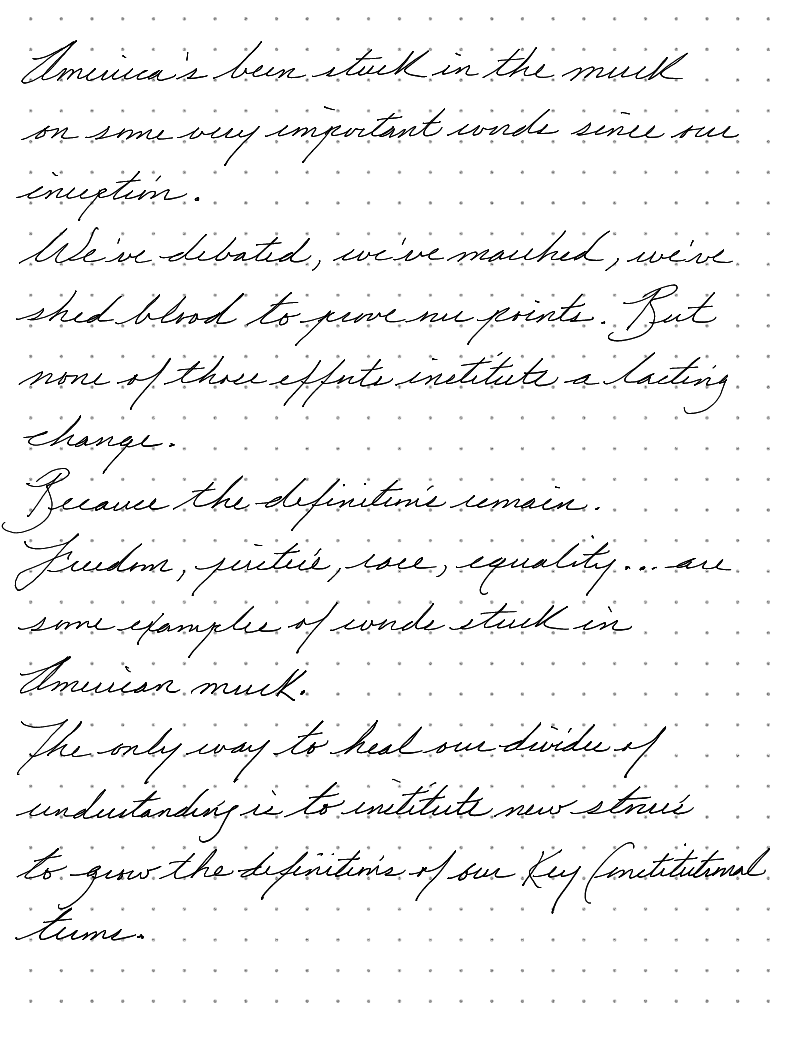 America's been stuck in the muck
on some very important words since our
inception.
We've debated, we've marched, we've
shed blood to prove our points. But
none of those efforts institute a lasting
change.
Because the definitions remain.
Freedom, justice, race, equality... are
some examples of words stuck in
American muck.
The only way to heal our divides of
understanding is to institute new stories
to grow the definitions of our Key Constitutional
terms.